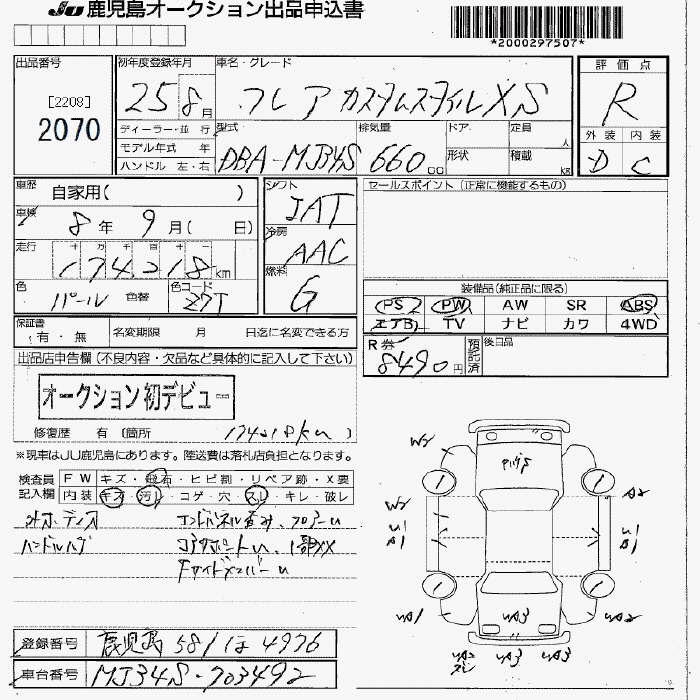 JU 鹿児島オークション出品申込書
*2000297507*
出品番号 [2208] 2070
初年度登録年月 25 8月
車名・グレード フレア カスタムスタイル XS
評価点 R
外装 内装
D C
ディーラー・並 行
モデル年式 年
ハンドル 左・右
型式 DBA-MJ34S
排気量 660 cc
ドア 形状
定員 人
積載 kg
車歴 自家用( )
車検 8年 9月( 日)
走行 十 万 千 百 十 174218km
色 パール 色替
色コード Z7T
シフト IAT
冷房 AAC
燃料 G
セールスポイント (正常に機能するもの)
装備品(純正品に限る)
PS PW AW SR ABS
エアB TV ナビ カワ 4WD
保証書 有・無
名変期限 月 日迄に名変できる方
R券 8490円
預託済
後日品
出品店申告欄 (不良内容・欠品など具体的に記入して下さい)
オークション初デビュー
修復歴 有 (箇所 174218km )
※現車はJU鹿児島にあります。陸送費は落札店負担となります。
検査員記入欄
FW キズ・飛石・ヒビ割・リペア跡・X要
内装 キズ・汚レ・コゲ・穴・スレ・キレ・破レ
外ホ-ディス エンドパネル歪み、フロアーu
ハンドルハゲ コアサポートu、1部XX
FサイドメンバーU
登録番号 鹿児島 581 ほ 4976
車台番号 MJ34S-703492
W2
A2
W2
U1
B1
A1
UA1
UA3
UA2
UA2
UA3
UA3